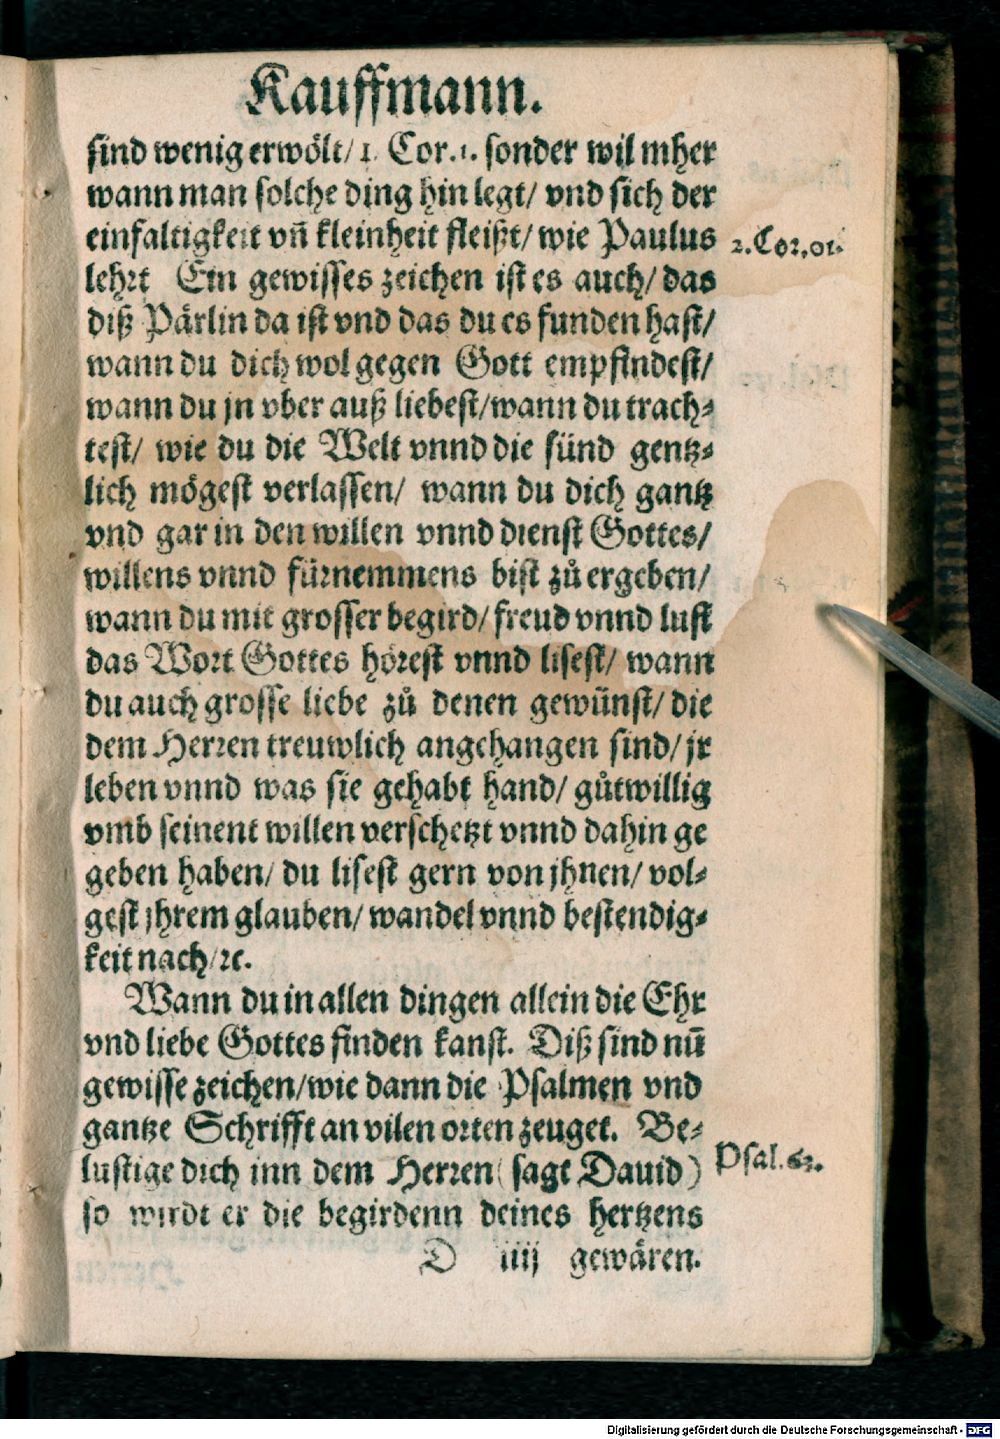 Kauffmann.
sind wenig erwölt/ 1. Cor. 1. sonder wil mher
wann man solche ding hin legt/ vnd sich der
einfaltigkeit vñ kleinheit fleißt/ wie Paulus
2. Cor. 01.
lehrt Ein gewisses zeichen ist es auch/ das
diß Pärlin da ist vnd das du es funden hast/
wann du dich wol gegen Gott empfindest/
wann du jn vber auß liebest/ wann du trach-
test/ wie du die Welt vnnd die sünd gentz-
lich mögest verlassen/ wann du dich gantz
vnd gar in den willen vnnd dienst Gottes/
willens vnnd fürnemmens bist zů ergeben/
wann du mit grosser begird/ freud vnnd lust
das Wort Gottes hörest vnnd lisest/ wann
du auch grosse liebe zů denen gewünst/ die
dem Herren treuwlich angehangen sind/ jr
leben vnnd was sie gehabt hand/ gůtwillig
vmb seinent willen verschetzt vnnd dahin ge
geben haben/ du lisest gern von jhnen/ vol-
gest jhrem glauben/ wandel vnnd bestendig-
keit nach/ ꝛc.
Wann du in allen dingen allein die Ehr
vnd liebe Gottes finden kanst. Diß sind nů
gewisse zeichen/ wie dann die Psalmen vnd
gantze Schrifft an vilen orten zeuget. Be-
lustige dich inn dem Herren ( sagt Dauid )
Psal. 63.
so wirdt er die begirdenn deines hertzens
D iiij gewären.
Digitalisierung gefördert durch die Deutsche Forschungsgemeinschaft - DFG